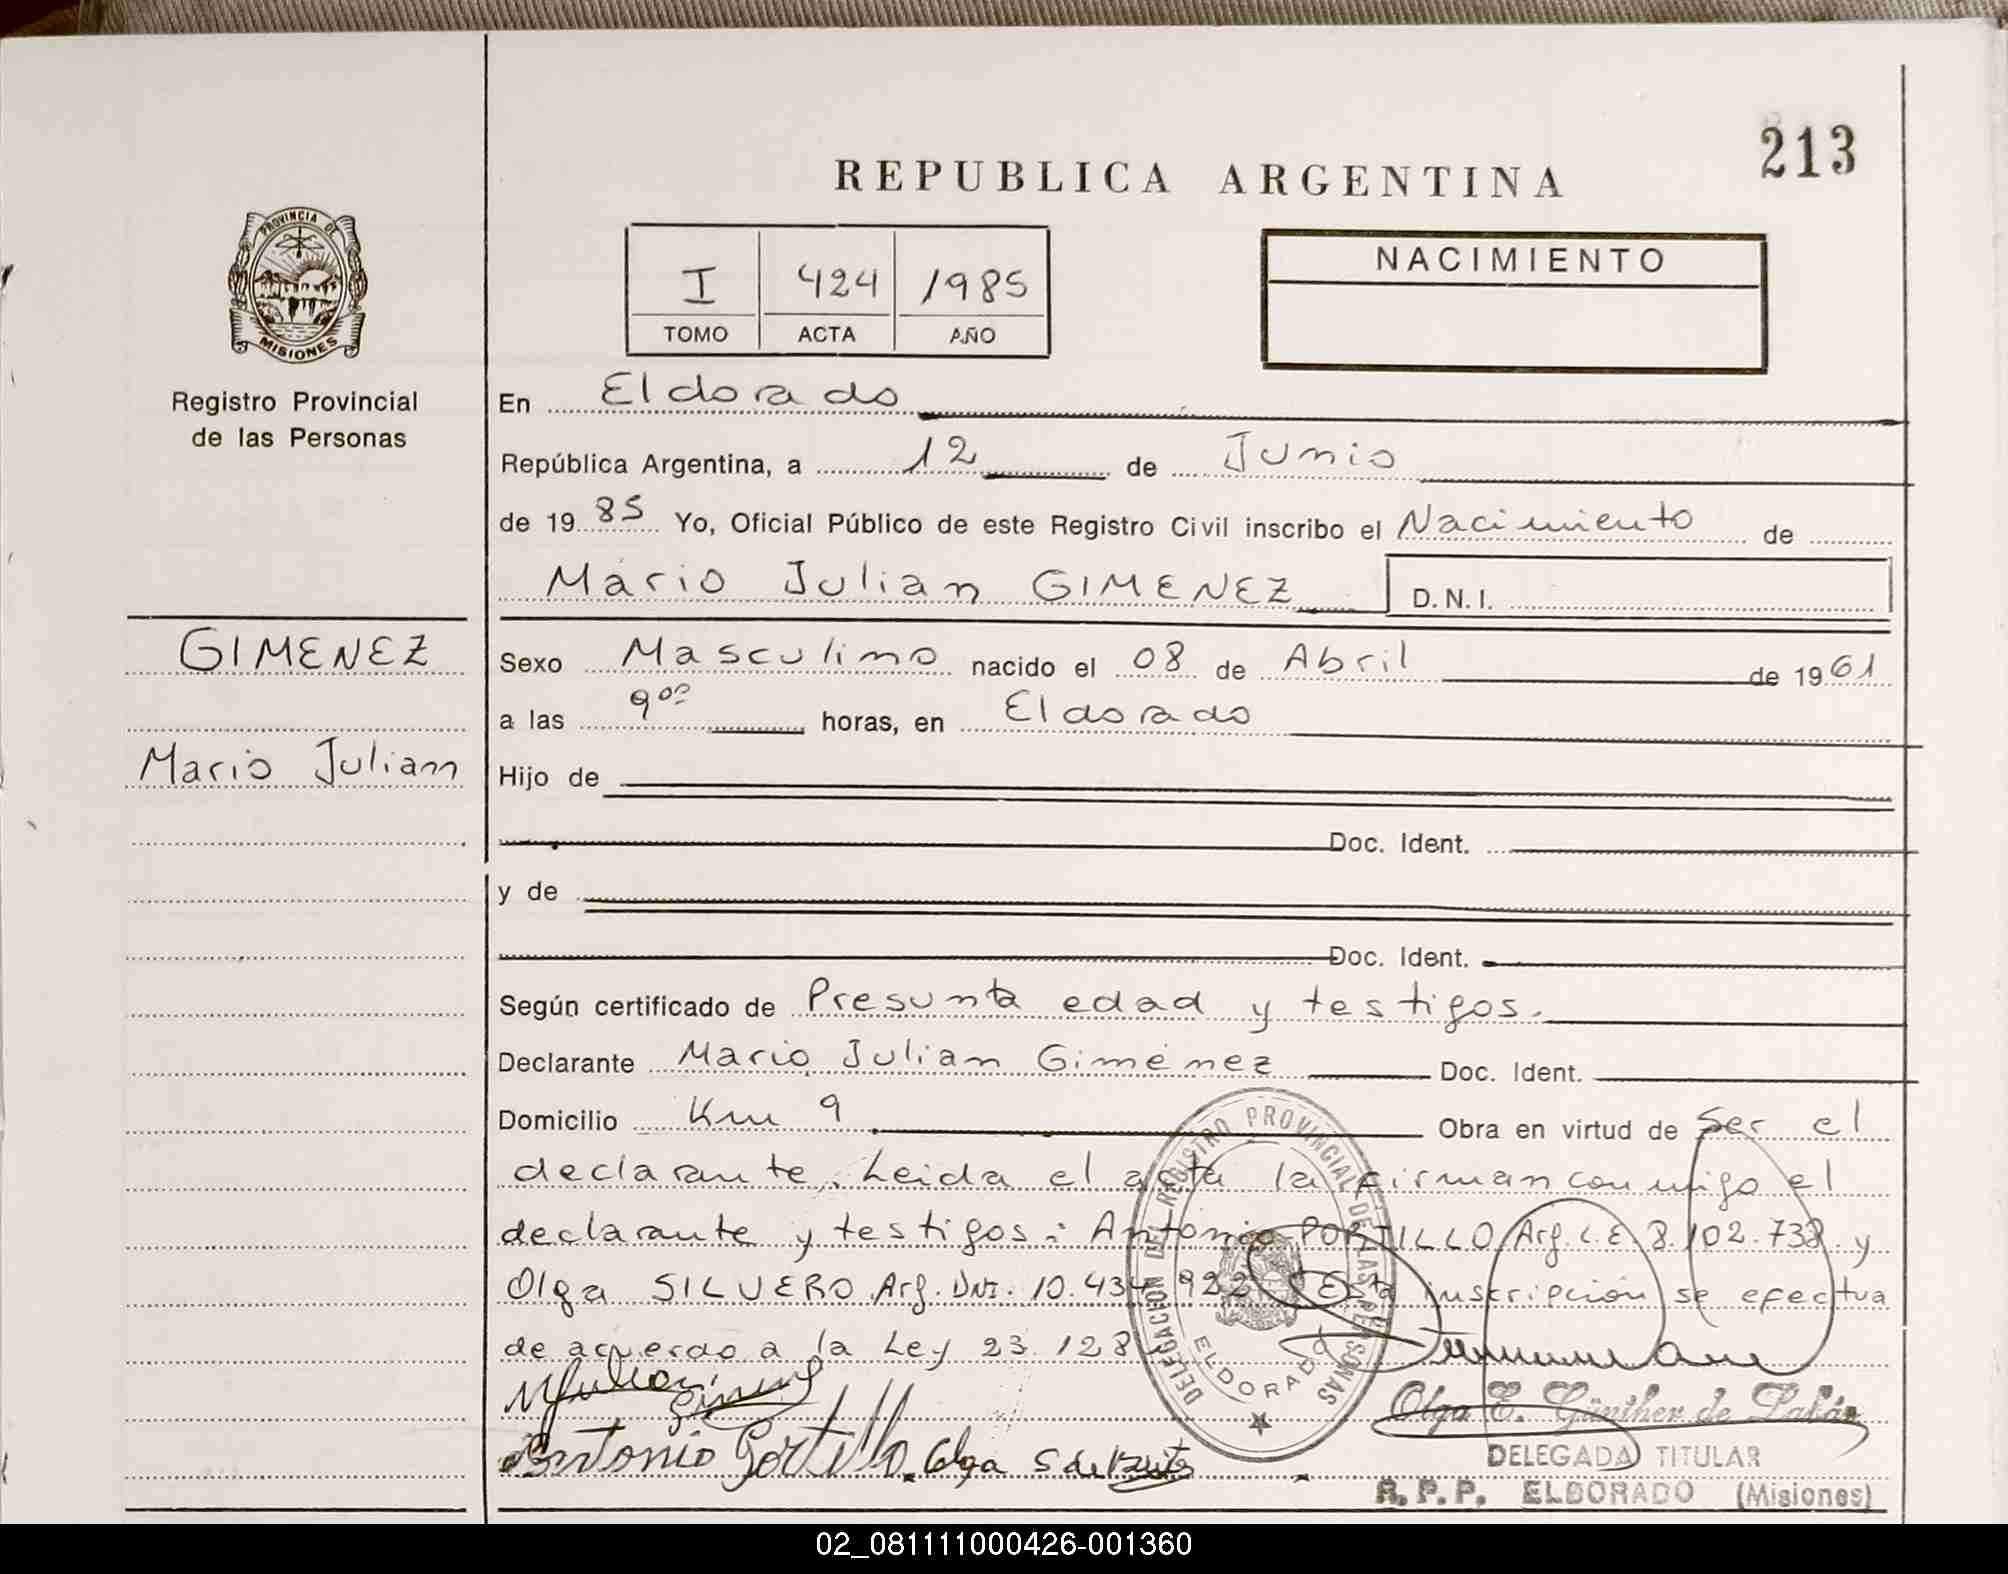 213
REPUBLICA ARGENTINA
PROVINCIA DE
MISIONES
Registro Provincial
de las Personas
I 424 1985
TOMO ACTA AÑO
NACIMIENTO
En Eldorado
República Argentina, a 12 de Junio
de 1985 Yo, Oficial Público de este Registro Civil inscribo el Nacimiento de
Mario Julian GIMENEZ D.N.I.
GIMENEZ
Mario Julian
Sexo Masculino nacido el 08 de Abril de 1961
a las 9⁰⁰ horas, en Eldorado
Hijo de
Doc. Ident.
y de
Doc. Ident.
Según certificado de Presunta edad y testigos.
Declarante Mario Julian Giménez Doc. Ident.
Domicilio Km 9 Obra en virtud de ser el
declarante. Leida el acta la firman conmigo el
declarante y testigos: Antonio PORTILLO Arg. L.E 8.102.738 y
Olga SILVERO Arg. DNI. 10.434.922 Esta inscripción se efectua
de acuerdo a la Ley 23.128
Antonio Portillo. Olga S de
DELEGACION DEL REGISTRO PROVINCIAL DE LAS PERSONAS
ELDORADO
Olga E. Günther de
DELEGADA TITULAR
R.P.P. ELDORADO (Misiones)
02_081111000426-001360